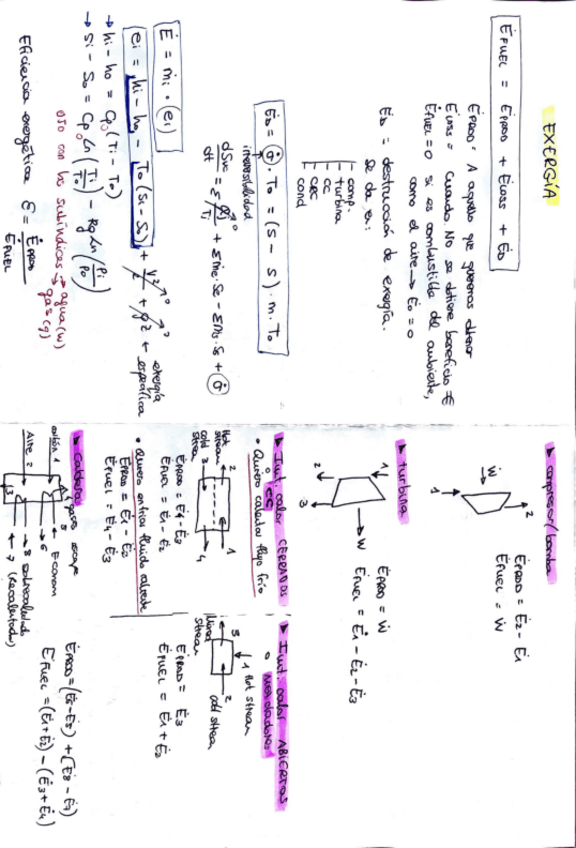 EXERGÍA
ĖFUEL = ĖPROD + ĖLOSS + ĖD
ĖPROD = A aquello que queremos obtener
ĖLOSS = Cuando No se obtiene beneficio €
ĖFUEL = 0 si es combustible del ambiente,
como el aire → Ė0 = 0
ĖD = destrucción de exergía.
se da en:
comp.
turbina
CC
CRC
cond
ĖD = σ̇ · T0 = (S - S) · m · T0
irreversibilidad
dSvc/dt = Σ Qj/Tj + Σṁe · se - Σṁs · ss + σ̇
Ė = ṁi · ei
ei = hi - h0 - T0 (si - s0) + V²/2 + gz →
energía específica
→ hi - h0 = Cp (Ti - T0)
→ si - s0 = Cp Ln (Ti/T0) - Rg Ln (Pi/P0)
OJO con los subíndices → agua (w)
gas (g)
Eficiencia exergética ε = ĖPROD / ĖFUEL
▶ compresor / bomba
Ẇ
1
2
ĖPROD = Ė2 - Ė1
ĖFUEL = Ẇ
▶ turbina
1
2
3
W
ĖPROD = Ẇ
ĖFUEL = Ė1 - Ė2 - Ė3
▶ Int. calor CERRADOS
• CC
• Quiero calentar flujo frío
Hot stream
cold stream
1
2
3
4
ĖPROD = Ė4 - Ė3
ĖFUEL = Ė1 - Ė2
• Quiero enfriar fluido caliente
ĖPROD = Ė1 - Ė3
ĖFUEL = Ė4 - Ė3
▶ Int. calor ABIERTOS
• Mezcladores
1 Hot stream
2 cold stream
3
Mixed stream
ĖPROD = Ė3
ĖFUEL = Ė1 + Ė2
▶ Caldera
gases escape
1
Aire 2
3
5
6
8 sobrecalentado
7 (recalentador)
ĖPROD = (Ė6 - Ė5) + (Ė8 - Ė7)
ĖFUEL = (Ė1 + Ė2) - (Ė3 + Ė4)